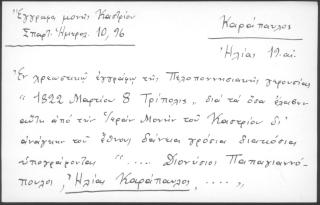 Ἔγγραφα μονῆς Καστρίου
Σπαρτ. Ἡμερολ. 10, 96
Καράπαυλος
Ἠλίας 19. αἰ.
Ἐν χρεωστικῷ ἐγγράφῳ τῆς Πελοποννησιακῆς γερουσίας
"1822 Μαρτίου 8 Τρίπολις" διά τά ὅσα ἔλαβεν
αὕτη ἀπό τήν Ἱεράν Μονήν τοῦ Καστρίου δι'
ἀνάγκην τοῦ ἔθνους δάνεια γρόσια διακόσια
ὑπογράφονται "..... Διονύσιος Παπαγιαννό-
πουλος, Ἠλίας Καράπαυλος, ....."